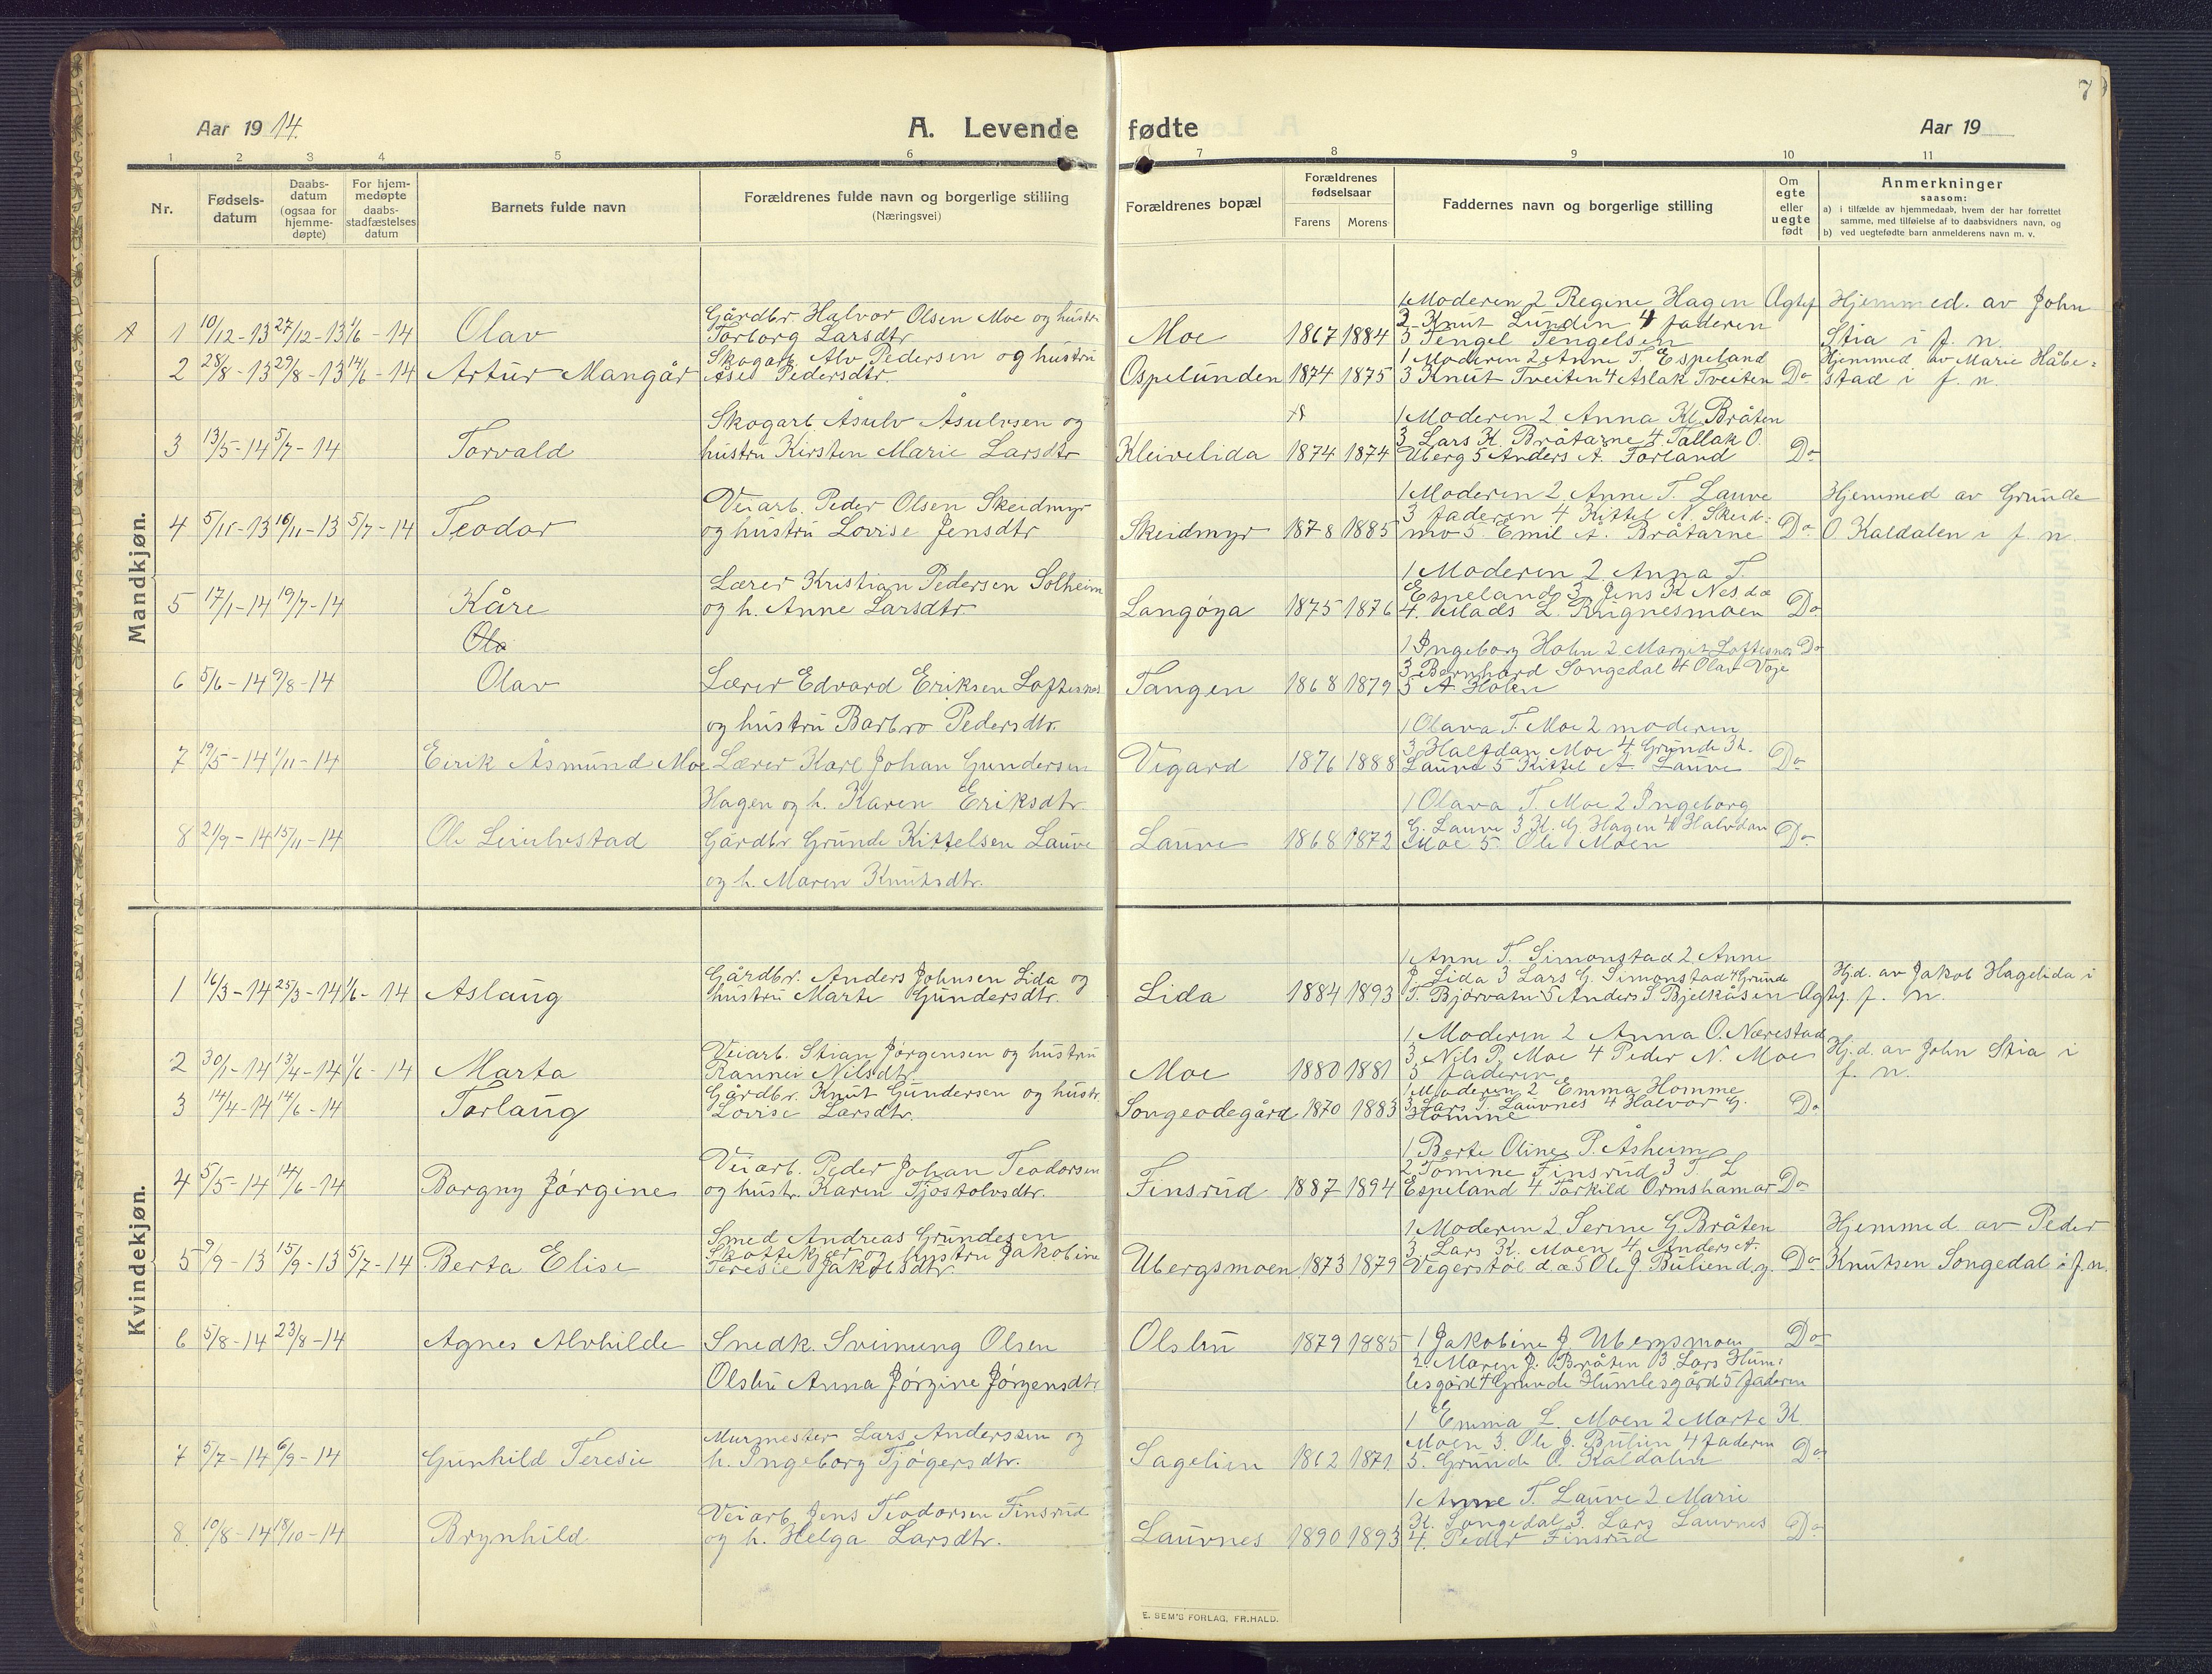 7
Aar 19 14.
A. Levende fødte
Aar 19
1 2 3 4 5 6 7 8 9 10 11
Nr.
Fødsels-
datum
Daabs-
datum
(ogsaa for
hjemme-
døpte)
For hjem-
medøpte
daabs-
stadfæstelses
datum
Barnets fulde navn
Forældrenes fulde navn og borgerlige stilling
(Næringsvei)
Forældrenes bopæl
Forældrenes
fødselsaar
Farens Morens
Faddernes navn og borgerlige stilling
Om
egte
eller
uegte
født
Anmerkninger
saasom:
a) i tilfælde av hjemmedaab, hvem der har forrettet
samme, med tilføielse af to daabsvidners navn, og
b) ved uegtefødte barn anmelderens navn m. v.
Mandkjøn.
1 10/12-13 27/12-13 1/6-14 Olav
Gårdbr. Halvor Olsen Moe og hustru
Torborg Larsdtr
Moe 1867 1884
1 Moderen 2 Regine Hagen
3 Knut Lunden 4 faderen
5 Tengel Tengelsen
Ægtef
Hjemmed. av John
Stia i f. n.
2 28/8-13 29/8-13 14/6-14 Artur Mangår
Skogarb. Alv Pedersen og hustru
Åse Pedersdtr.
Ospelunden 1874 1875
1 Moderen 2 Anne T. Espeland
3 Knut Tveiten 4 Aslak Tveiten Do
Hjemmed av Marie Håbe-
stad i f. n.
3 13/5-14 5/7-14 Torvald
Skogarb. Åsulv Åsulvsen og
hustru Kirsten Marie Larsdtr
Kleivelida 1874 1874
1 Moderen 2 Anna Kl. Bråten
3 Lars K. Bråtarne 4 Tallak O.
Uberg 5 Anders A. Forland Do
4 5/11-13 16/11-13 5/7-14 Teodor
Veiarb. Peder Olsen Skeidmyr
og hustru Lovise Jensdtr
Skeidmyr 1878 1885
1 Moderen 2 Anne T. Lauve
3 faderen 4 Kittel N. Skeid-
mo 5 Emil A. Bråtarne Do
Hjemmed av Grunde
O. Kaldalen i f. n.
5 17/1-14 19/7-14 Kåre
Lærer Kristian Pedersen Solheim
og h. Anne Larsdtr
Langøya 1875 1876
1 Moderen 2 Anna T.
Espeland 3 Jens K Nes d.æ
4. Mads L. Rugnesmoen Do
Ola
6 5/6-14 9/8-14 Olav
Lærer Edvard Eriksen Loftesnes
og hustru Barbro Pedersdtr.
Tangen 1868 1879
1 Ingeborg Holen 2 Margit Loftesnes Do
3 Bernhard Songedal 4 Olav Voje
5 A Holen
7 19/5-14 1/11-14 Eirik Åsmund Moe
Lærer Karl Johan Gundersen
Hagen og h. Karen Eriksdtr
Vegard 1876 1888
1 Olava T. Moe 2 moderen
3 Halfdan Moe 4 Grunde K.
Lauve 5 Kittel A Lauve Do
8 21/9-14 15/11-14 Ole
Gårdbr. Grunde Kittelsen Lauve
og h. Maren Knutsdtr.
Lauve 1868 1872
1 Olava T. Moe 2 Ingeborg
G. Lauve 3 K. G. Hagen 4 Halvdan
Moe 5 Ole Moen Do
Kvindekjøn.
1 16/3-14 25/3-14 1/6-14 Aslaug
Gårdbr. Anders Johnsen Lida og
hustru Marte Gundersdtr.
Lida 1884 1893
1 Anne T. Simonstad 2 Anne
J. Lida 3 Lars G. Simonstad 4 Grunde
T. Bjorvatn 5 Anders S. Bjelkåsen Ægtef.
Hj.d. av Jakob Hagelida i
f. n.
2 30/1-14 13/4-14 1/6-14 Marta
Veiarb. Stian Jørgensen og hustru
Rannei Nilsdtr
Moe 1880 1881
1 Moderen 2 Anna O. Nærestad
3 Nils P. Moe 4 Peder N. Moe
5 faderen
Hj.d. av John Stia i
f. n.
3 14/4-14 14/6-14 Torlaug
Gårdbr. Knut Gundersen og hustr.
Lovise Larsdtr.
Songeodegård 1870 1883
1 Moderen 2 Emma Homme
3 Lars T. Lauvnes 4 Halvor G.
Homme Do
4 5/5-14 14/6-14 Borgny Jørgine
Veiarb. Peder Johan Teodorsen
og hustr. Karen Tjøstolvsdtr.
Finsrud 1887 1894
1 Berte Oline P. Åsheim
2 Tomine Finsrud 3 T. L
Espeland 4 Torkild Ormshamar Do
5 9/9-13 15/9-13 5/7-14 Berta Elise
Smed Andreas Grundesen
Skottekjær og hustru Jakobine
Teresie Jakobsdtr.
Ubergsmoen 1873 1879
1 Moderen 2 Serine G. Bråten
3 Lars K. Moen 4 Anders A.
Vegerstøl d.æ 5 Ole J. Bulien d.y. Do
Hjemmed av Peder
Knutsen Songedal i f.n.
6 5/8-14 23/8-14 Agnes Alvhilde
Snedk. Sveinung Olsen
Olsbu Anna Jørgine Jørgensdtr
Olsbu 1879 1885
1 Jakobine J. Ubergsmoen Do
2 Maren J. Bråten 3 Lars Hum-
lesgård 4 Grunde Humlesgård 5 faderen
7 5/7-14 6/9-14 Gunhild Teresie
Murmester Lars Anderssen og
h. Ingeborg Tjøgersdtr.
Sagelien 1862 1871
1 Emma L. Moen 2 Marte K.
Moen 3. Ole J. Bulien 4 faderen
5. Grunde O. Kaldalen Do
8. 10/8-14 18/10-14 Brynhild
Veiarb. Jens Teodorsen Finsrud
og h. Helga Larsdtr.
Lauvnes 1890 1893
1 Anne T. Lauve 2 Marie
K. Songedal 3. Lars Lauvnes
4. Peder Finsrud Do
E. SEM'S FORLAG, FR.HALD.